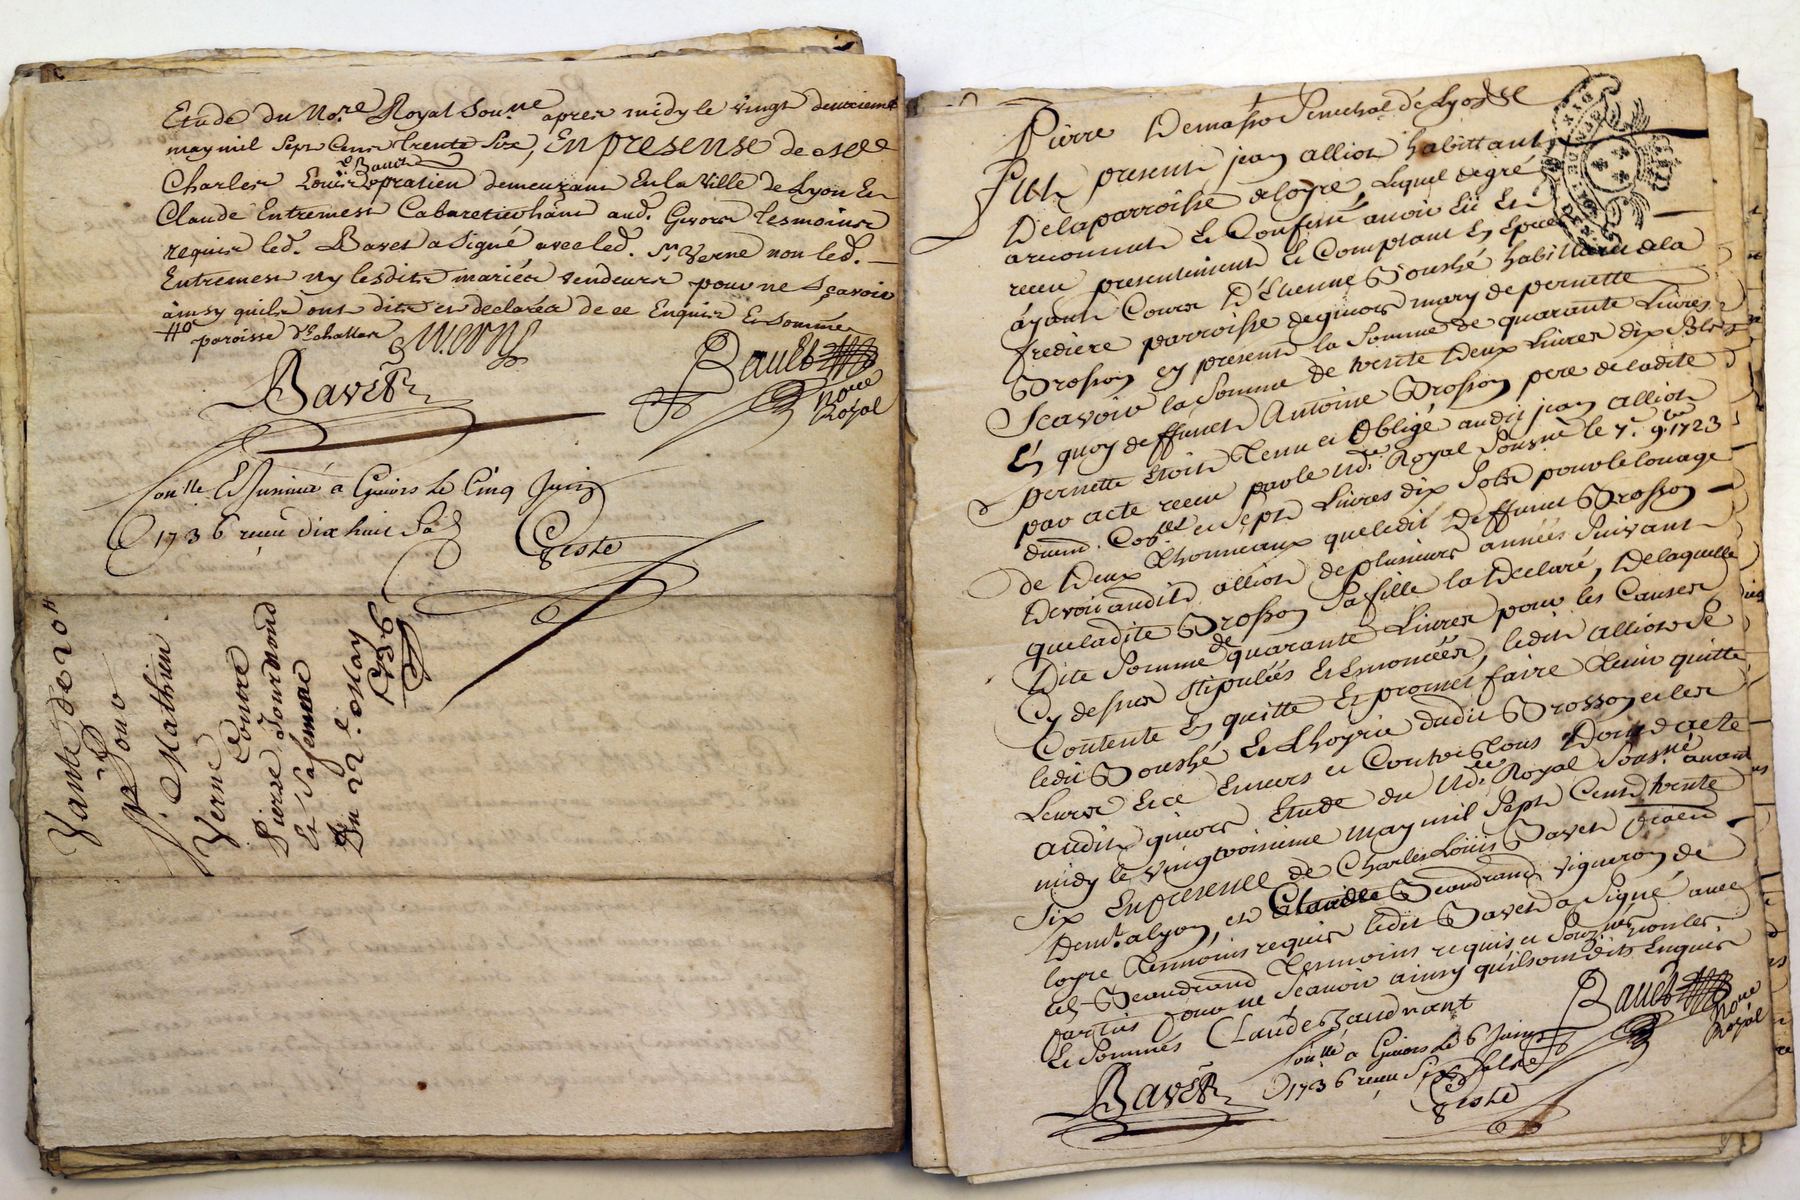 Etude du No.re Royal Sou.ne apres midy le vingt deuxieme
may mil Sept Cens trente Six, En presense de
Charles Louis Bavet pratien demeurant En la Ville de Lyon Et
Claude Entremest Cabaretier aud. Givors tesmoins
requis led. Bavet a Signé avec led. Sr Verne non led.
Entremest ny lesdits mariés vendeurs pour ne Sçavoir
ainsy quils ont dits et declarés de ce Enquis Et Sommés
paroisse
Verne
Bavet
Bauet
no.re
Royal
Con.lle Et Insinué a Givors Le Cinq Juin
1736 receu dix huit Sols
Coste
Vante de 20 tt
Pour
Sr. Mathieu
Verne
Contre
Pierre Jourdnoud
Et Sa femme
Du 22.e May
1736
Pierre Demasso Senechal de Lyon
Fut present jean alliot habittant
De la parroisse de loyre, Lequel de gré
a reconneu Et Confessé avoir Eü Et
receu presentement Et Comptant En Espece
ayant Cours D'Etienne Boushé habittant de la
frediere parroisse de givors mary de pernette
Brosson cy present la Somme de quarante Livres
Scavoir la Somme de trente Deux Livres dix Sols
En quoy deffunct Antoine Brosson pere de ladite
pernette Etoit Tenu et Obligé audit jean alliot
par acte receu par le No.re Royal Sousné le 7.e 9.bre 1723
et Sept Livres dix Sols pour le louage
de Deux Thonneaux que ledit Deffunct Brosson
Devoit audit alliot de plusieurs années Suivant
que ladite Brosson Sa fille la Declaré, De laquelle
Dite Somme de quarante Livres pour les Causes
Cy dessus Stipulées Et Enoncées, ledit alliot Se
Contente En quitte Et promet faire Tenir quitte
ledit Boushé Et L'hoyrie dudit Brosson et les
Leurs Et ce Envers et Contre Tous Dont acte
audit givors Etude du No.re Royal Sous.né avant
midy le vingtroisieme may mil Sept Cens trente
Six En presence de Charles Louis Bavet praen
Dem.t a lyon, et Claude Beaudrand vigneron de
loyre Tesmoins requis ledit Bavet a Signé avec
led. Beaudrand Tesmoins requis et Sousnés non les
parties pour ne Scavoir ainsy quils ont dits Enquis
Et Sommés Claude Baudrant
Bauet
no.re
Royal
Bavet
Con.lle a Givors Le 6 Juin
1736 receu Six Sols
Coste